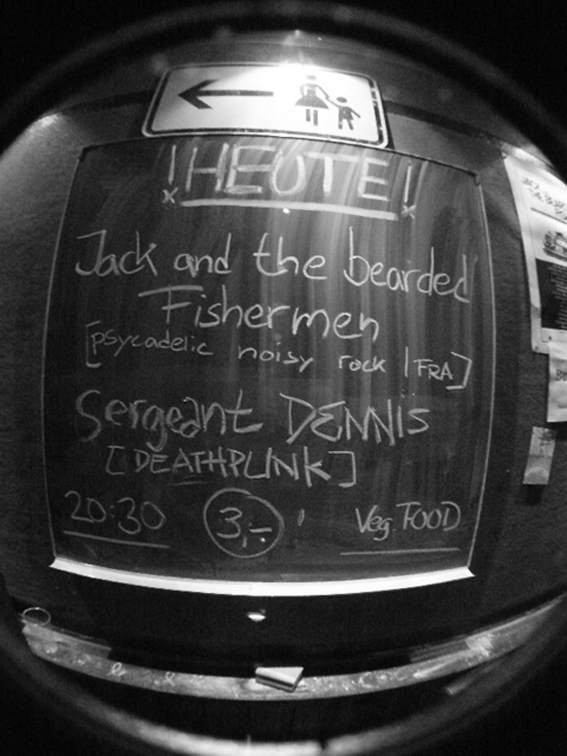 !HEUTE!
Jack and the bearded
Fishermen
[psycadelic noisy rock | FRA]
Sergeant DENNIS
[DEATHPUNK]
20:30 3,-! Veg. FOOD